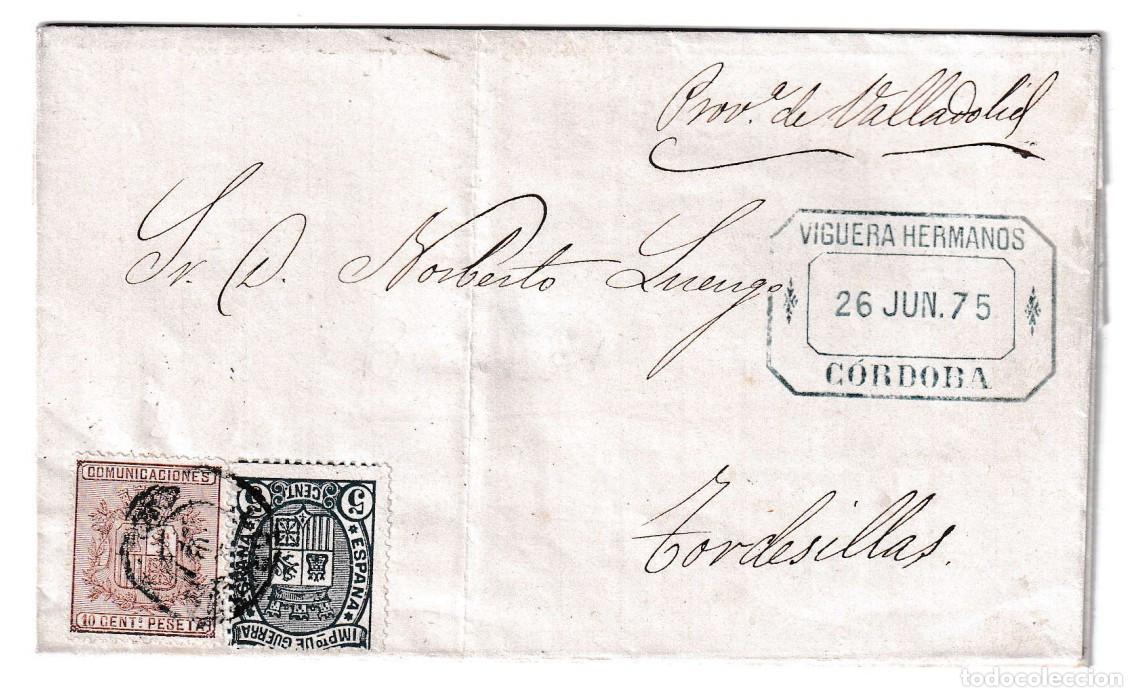 Prov.ª de Valladolid
Sr. D. Norberto Luengo
VIGUERA HERMANOS
26 JUN. 75
CÓRDOBA
Tordesillas.
COMUNICACIONES
10 CENT.s PESETA
5 CENT. 5
ESPAÑA
IMPTO DE GUERRA
todocoleccion